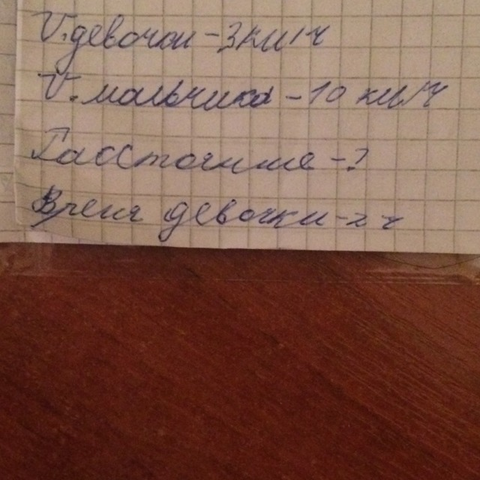 V. девочки - 3 км/ч
V. мальчика - 10 км/ч
Расстояние - ?
Время девочки - 2 ч